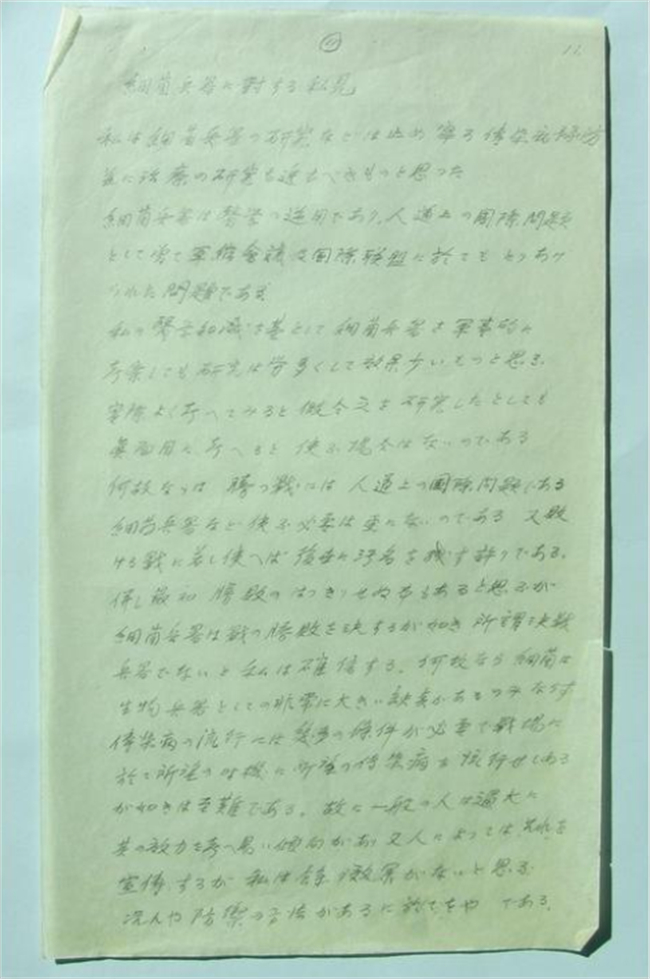 11.
細菌兵器に對する私見
私は細菌兵器の研究などは止め寧ろ傳染病豫防
並に治療の研究を進むべきものと思った
細菌兵器は醫學の逆用であり、人道上の國際問題
として嘗て軍縮會議及國際聯盟に於てもとりあげ
られた問題である
私の醫学知識を基として細菌兵器を軍事的に
考察しても研究は労多くして效果少いものと思る、
実際よく考へてみると假令之を研究したとしても
真面目に考へると使ふ場合はないのである
何故ならば 勝つ戦には 人道上の國際問題である
細菌兵器など使ふ必要は更にないのである 又敗
ける戦に若し使へば後世に汚名を残す許りである、
併し最初 勝敗のはっきりせぬ事もあると思ふが
細菌兵器は戦の勝敗を決するが如き所謂決戦
兵器でないと私は確信する、何故なら細菌は
生物兵器としての非常に大きい缺点がある
傳染病の流行には幾多の條件が必要で戦場に
於て所望の時機に所望の傳染病を流行せしめる
が如きは至難である、故に一般の人は過大に
其の效力を考へ易い傾向があり又人によっては それを
宣傳するが 私は 效果がないと思る
况んや防禦の方法があるに於てをや である、